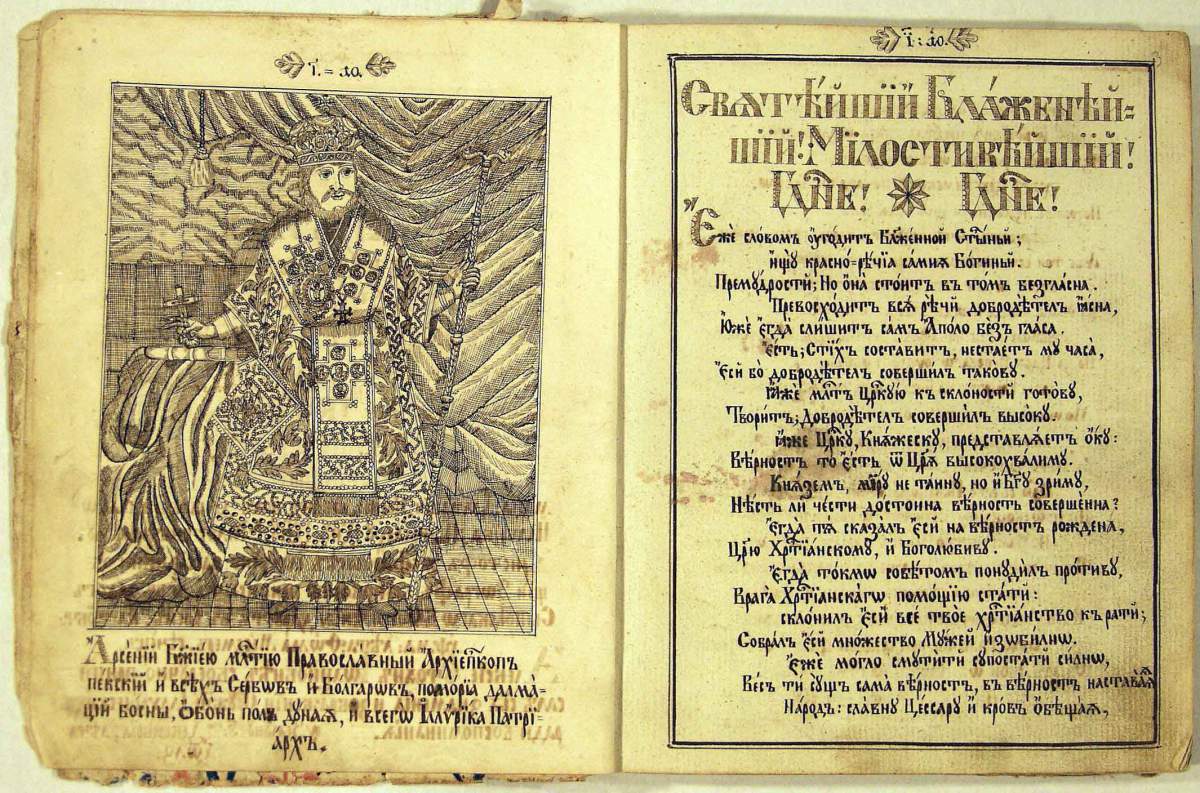 і҃. = 10.
Арсе́нїй Бж҃їею млⷭ҇тїю Правосла́вный А҆рхїепⷭ҇копъ
пекскїй и всѣ́хъ Се́рбѡвъ и҆ Болгарѡвъ, помо́рїа далма́-
цїй босны, Ѻ҆бо́нъ полъ дуная, и҆ всегѡ І҆ллѵ́рїка Патрї-
а́рхъ.
і҃ : 10.
Свѧтѣ́йшїй Бла́женѣй=
шїй! Мі́лостивѣ́йшїй!
Гдⷭ҇не! Гдⷭ҇не!
Е҆́же сло́вомъ оугоди́тъ Блⷤе́нной Стⷭ҇ынѝ ;
и҆щу̀ красно=рѣ́чїѧ самиѧ Боги́ны̀.
Премꙋ́дрости̑ ; Но ѻ҆на̀ сто́итъ въ то́мъ безгла́сна .
Превосхо́дитъ всѧ̀ рѣ́чи̑ добродѣ́тел ꙗ҆́сна,
Ю҆́же є҆гда̀ сли́шитъ са́мъ А҆по́ло безъ гла́са.
є҆́сть ; Сті́хъ соста́витъ, нестае́тъ мꙋ ча́са,
Є҆сѝ бо̀ добродѣ́тел соверши́лъ такову̀.
ꙗ҆́же млⷭ҇ть Црⷭ҇кую къ скло́ности̑ гото́вꙋ,
Твори́тъ; Добродѣ́тел соверши́лъ высо́кꙋ.
ꙗ҆́же Црⷭ҇кꙋ, Кнѧ́жескꙋ, представлѧ́етъ ѻ҆́кꙋ :
Вѣ́рность то̀ є҆́сть ѿ Црѧ̀ высокохва́лимꙋ.
Кнѧзе́мъ, мі́рꙋ не та́инꙋ, но и҆ Бг҃ꙋ зри́мꙋ,
Нѣ́сть ли че́сти досто́ина вѣ́рность соверше́нна ?
Є҆гда̀ тѧ̀ сказа́лъ є҆сѝ на вѣ́рность рожде́на,
Црⷭ҇ю Хрⷭ҇тїа́нскомꙋ, и҆ Боголю́бивꙋ.
Є҆гда̀ то́кмѡ совѣ́томъ понꙋ́дилъ про́тивꙋ,
Врага̀ Хрⷭ҇тїа́нскагѡ по́мощїю ста́ти :
склони́лъ є҆сѝ всѐ твоѐ хрⷭ҇тїа́нство къ ра́ти ;
Собра́лъ є҆сѝ мно́жество Мꙋже́й и҆зѡби́лнѡ.
Є҆́же могло̀ смꙋти́ти сꙋпоста́ти си́лнѡ,
Ве́сь ти̑ сꙋ́щъ сама̀ вѣ́рность, въ вѣ́рность наставлѧ́ѧ
На́родъ : сла́внꙋ Це́ссарꙋ и҆ кро́въ ѻ҆бѣща́ѧ ,